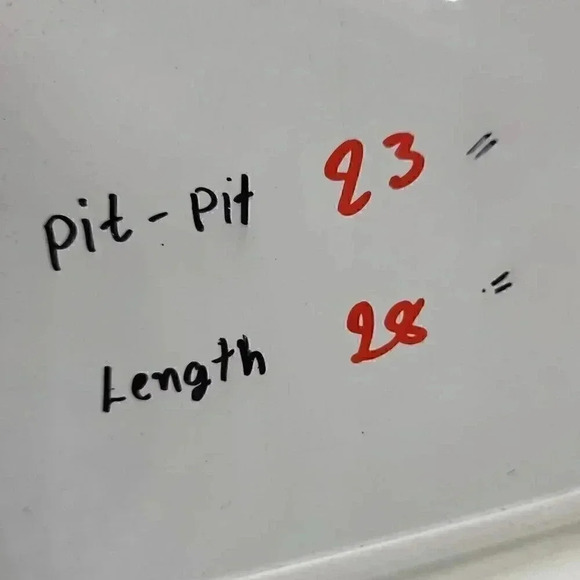 pit - pit 23 "
Length 28 "